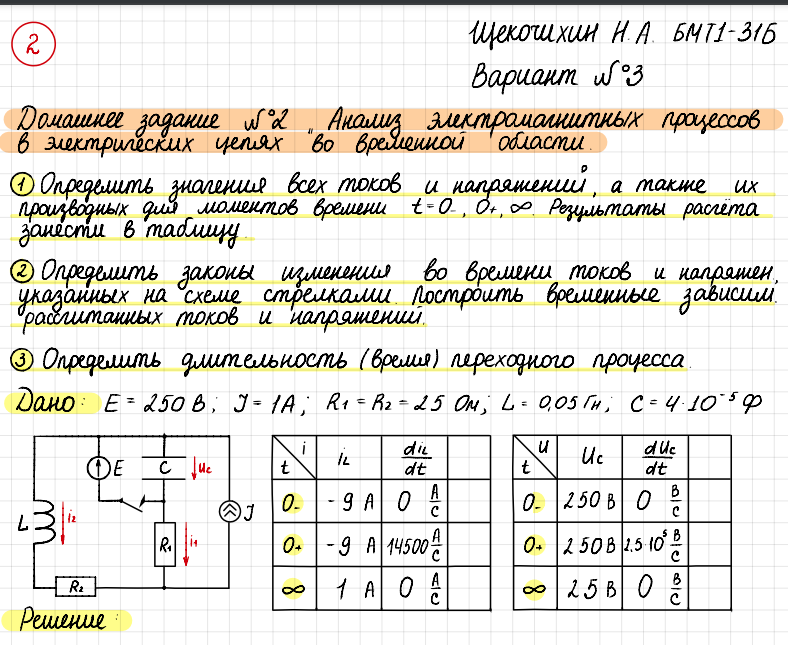 2
Щекочихин Н.А. БМТ1-31Б
Вариант №3
Домашнее задание №2 "Анализ электромагнитных процессов
в электрических цепях" во временной области.
① Определить значения всех токов и напряжений, а также их
производных для моментов времени t=0-, 0+, ∞. Результаты расчёта
занести в таблицу.
② Определить законы изменения во времени токов и напряжен,
указанных на схеме стрелками. Построить временные зависим.
рассчитанных токов и напряжений.
③ Определить длительность (время) переходного процесса.
Дано: E = 250 В; J = 1А; R1 = R2 = 25 Ом; L = 0,05 Гн; C = 4·10⁻⁵ Ф
E C Uc
L i2 J
R1 i1
R2
t i iL diL/dt
0- -9 А 0 А/с
0+ -9 А 14500 А/с
∞ 1 А 0 А/с
t U Uc dUc/dt
0- 250 В 0 В/с
0+ 250 В 2.5·10⁵ В/с
∞ 25 В 0 В/с
Решение: